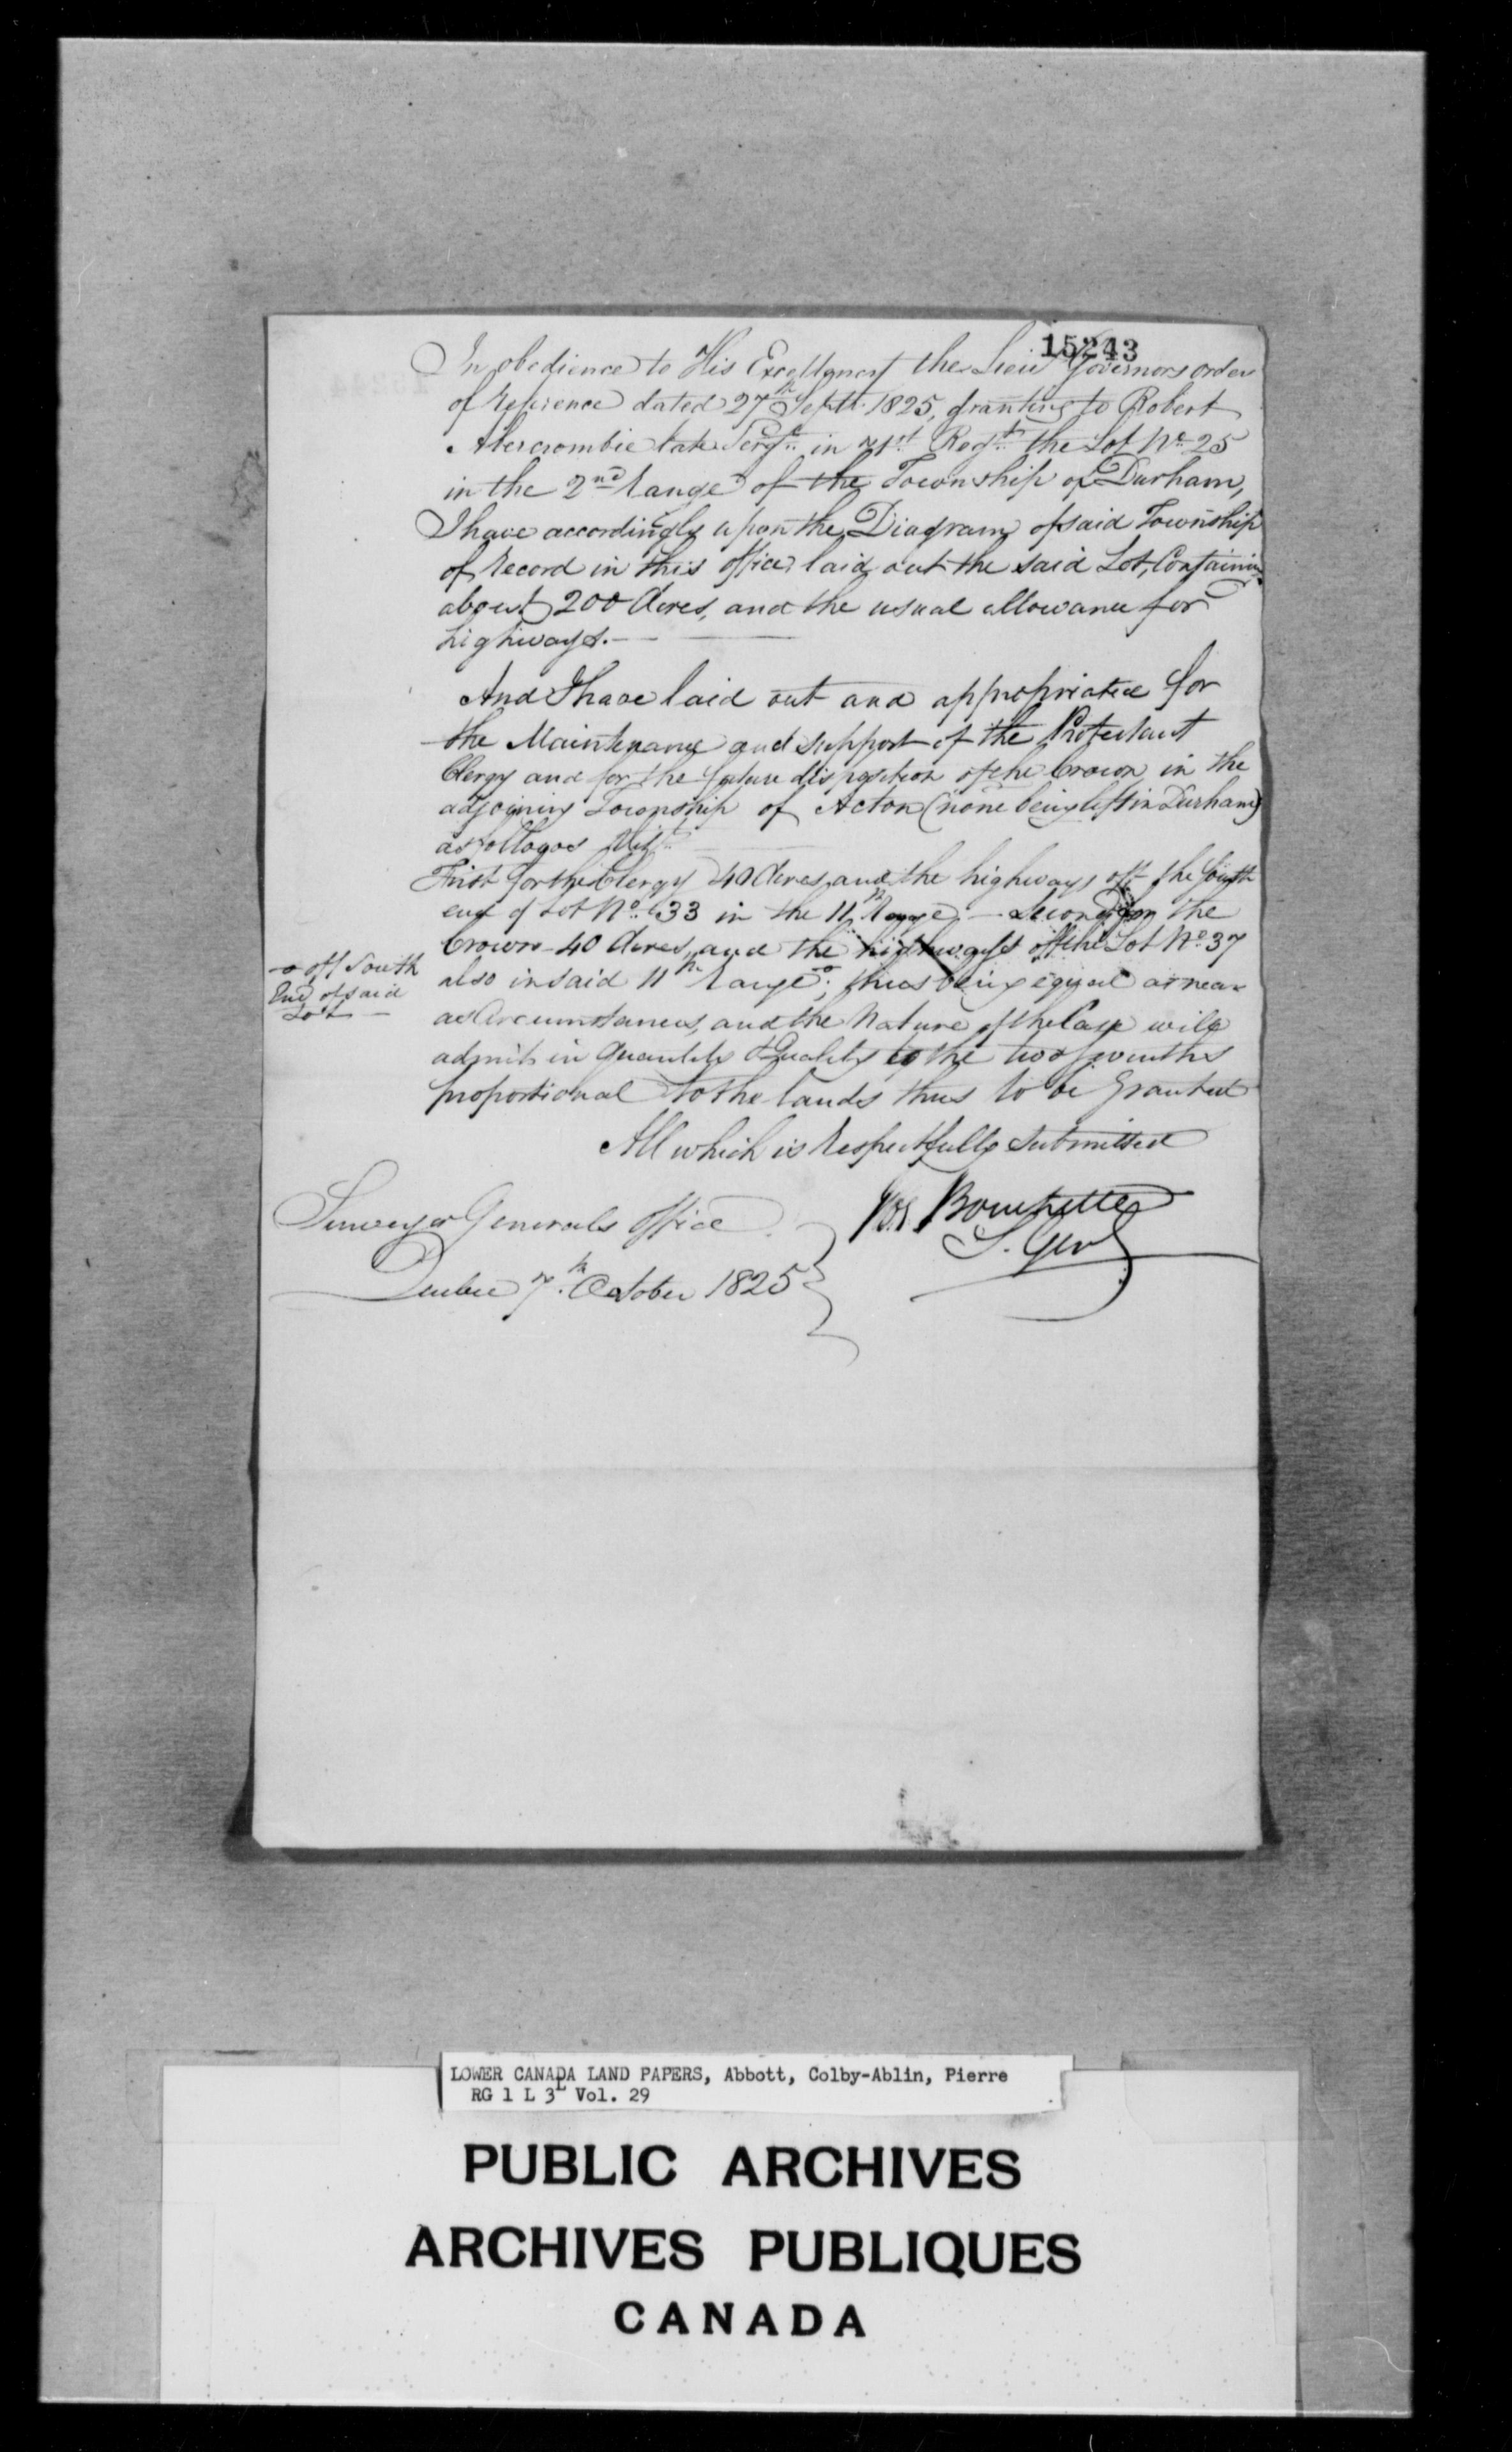 15243
In obedience to His Excellency the Lieu Governors order
of Reference dated 27th Septr. 1825, granting to Robert
Abercrombie late Sergt. in 71st Regt. the Lot No. 25
in the 2nd Range of the Township of Durham,
I have accordingly upon the Diagram of said Township
of Record in this office laid out the said Lot, Containing
about 200 Acres, and the usual allowance for
highways.—
And I have laid out and appropriated for
the Maintenance and support of the Protestant
Clergy and for the future disposition of the Crown in the
adjoining Township of Acton (none being left in Durham)
as follows Vizt.
First for the Clergy 40 Acres and the highways off the South
end of Lot No. 33 in the 11th Range — Second for the
Crown 40 Acres, and the highways off the Lot No. 37
—o off South
End of said
Lot —
also in said 11th Range o; thus being equal as near
as Circumstances, and the Nature of the Case will
admit in Quantity & Quality to the two sevenths
proportional to the Lands thus to be Granted
All which is Respectfully submitted
Surveyor Generals Office
Quebec 7th. October 1825
Jos Bouchette
S. Genl
LOWER CANADA LAND PAPERS, Abbott, Colby-Ablin, Pierre
RG 1 L 3L Vol. 29
PUBLIC ARCHIVES
ARCHIVES PUBLIQUES
CANADA